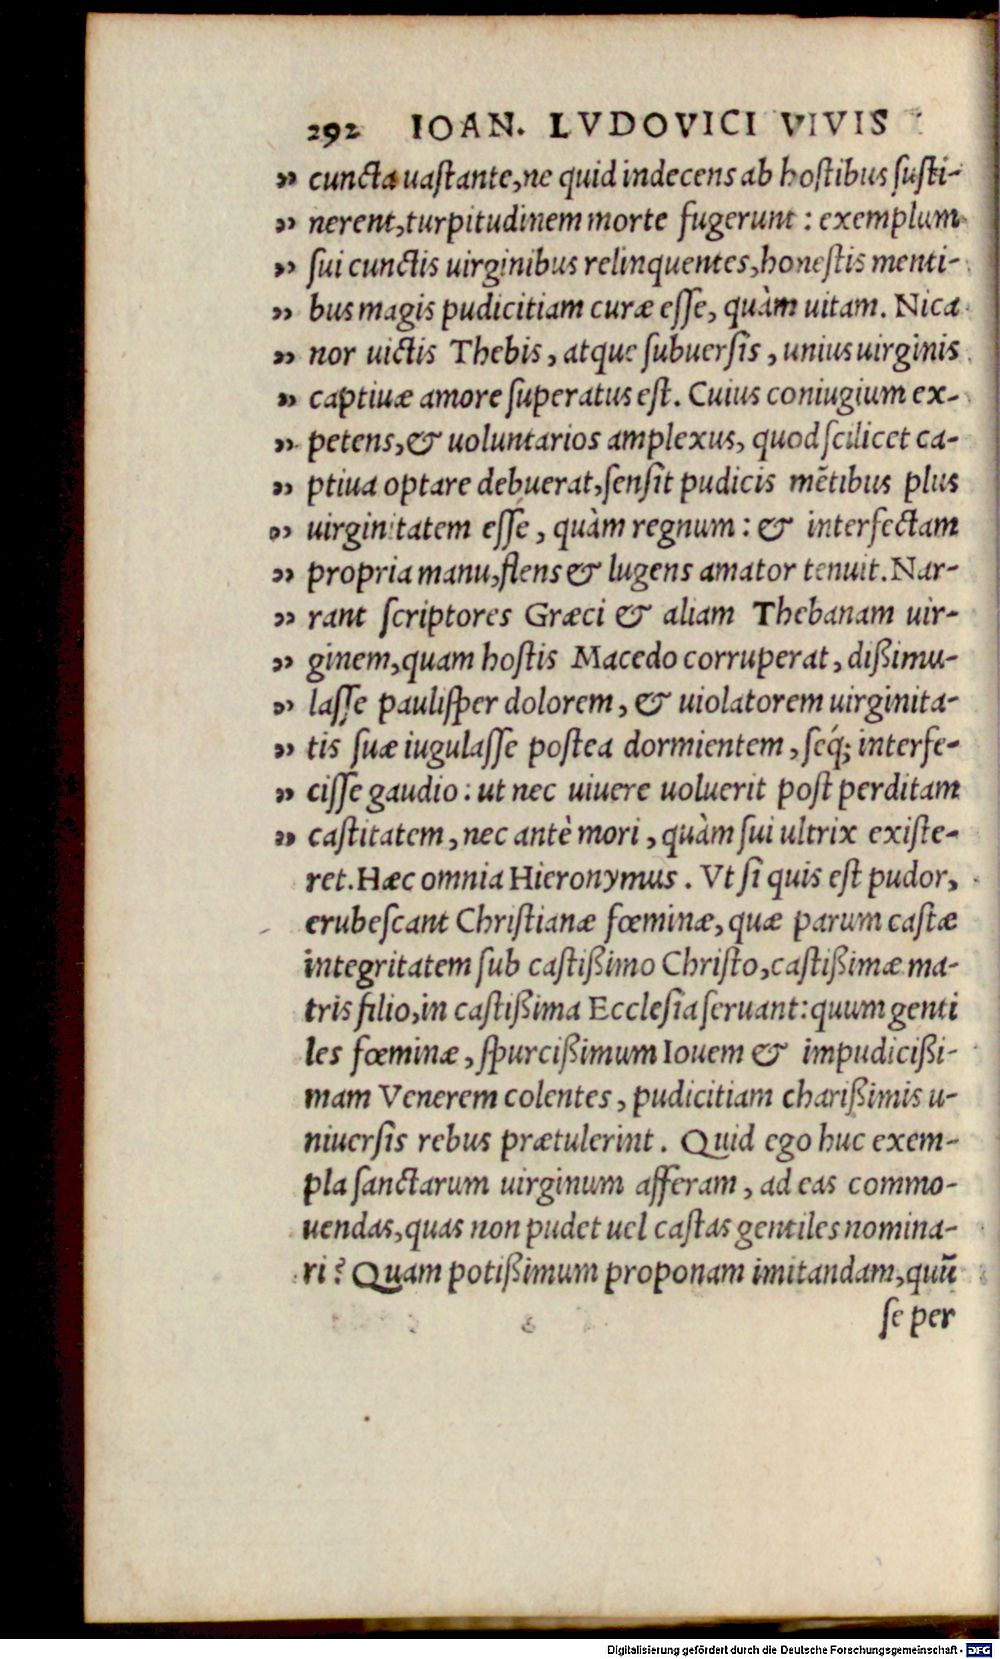 292 IOAN. LVDOVICI VIVIS
„ cuncta uaſtante, ne quid indecens ab hoſtibus ſuſti-
„ nerent, turpitudinem morte fugerunt : exemplum
„ ſui cunctis uirginibus relinquentes, honeſtis menti-
„ bus magis pudicitiam curæ eſſe, quàm uitam. Nica
„ nor uictis Thebis, atque ſubuerſis, unius uirginis
„ captiuæ amore ſuperatus eſt. Cuius coniugium ex-
„ petens, & uoluntarios amplexus, quod ſcilicet ca-
„ ptiua optare debuerat, ſenſit pudicis mẽtibus plus
„ uirginitatem eſſe, quàm regnum : & interfectam
„ propria manu, flens & lugens amator tenuit. Nar-
„ rant ſcriptores Græci & aliam Thebanam uir-
„ ginem, quam hoſtis Macedo corruperat, dißimu-
„ laſſe pauliſper dolorem, & uiolatorem uirginita-
„ tis ſuæ iugulaſſe poſtea dormientem, ſeq́; interfe-
„ ciſſe gaudio : ut nec uiuere uoluerit poſt perditam
„ caſtitatem, nec antè mori, quàm ſui ultrix exiſte-
ret. Hæc omnia Hieronymus. Vt ſi quis eſt pudor,
erubeſcant Chriſtianæ fœminæ, quæ parum caſtæ
integritatem ſub caſtißimo Chriſto, caſtißimæ ma-
tris filio, in caſtißima Eccleſia ſeruant: quum genti
les fœminæ, ſpurcißimum Iouem & impudicißi-
mam Venerem colentes, pudicitiam charißimis u-
niuerſis rebus prætulerint. Quid ego huc exem-
pla ſanctarum uirginum afferam, ad eas commo-
uendas, quas non pudet uel caſtas gentiles nomina-
ri? Quam potißimum proponam imitandam, quũ
ſe per
Digitalisierung gefördert durch die Deutsche Forschungsgemeinschaft - DFG